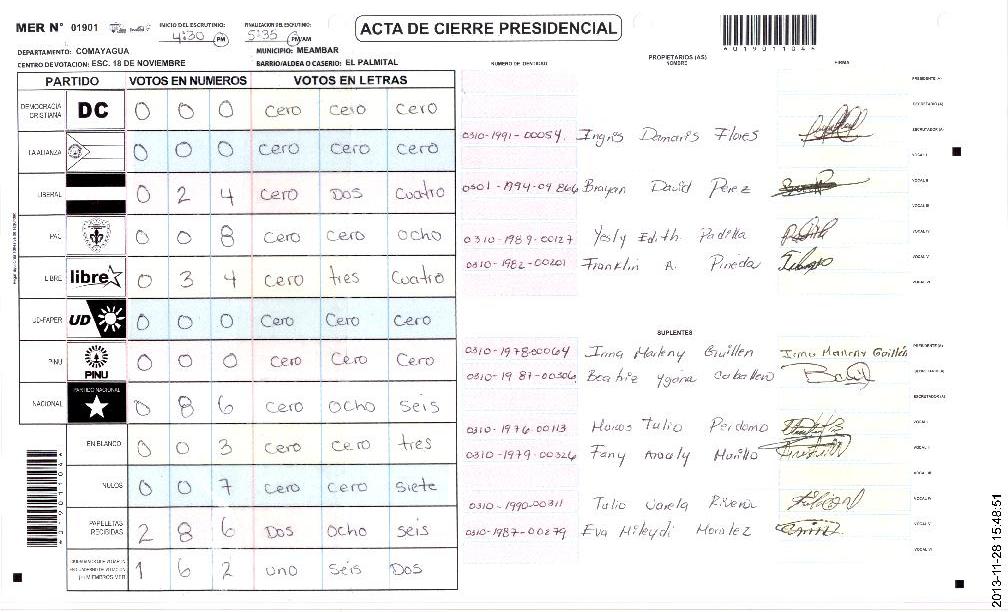 MER N° 01901
INICIO DEL ESCRUTINIO: 4:30 PM
FINALIZACION DEL ESCRUTINIO: 5:35 PM/AM
ACTA DE CIERRE PRESIDENCIAL
DEPARTAMENTO: COMAYAGUA
MUNICIPIO: MEAMBAR
CENTRO DE VOTACION: ESC. 18 DE NOVIEMBRE
BARRIO/ALDEA O CASERIO: EL PALMITAL
PARTIDO VOTOS EN NUMEROS VOTOS EN LETRAS
DEMOCRACIA CRISTIANA DC 0 0 0 cero cero cero
LA ALIANZA 0 0 0 cero cero cero
LIBERAL 0 2 4 cero Dos cuatro
PAC 0 0 8 cero cero ocho
LIBRE libre 0 3 4 cero tres cuatro
UD-FAPER UD 0 0 0 cero cero cero
PINU PINU 0 0 0 cero cero cero
NACIONAL PARTIDO NACIONAL 0 8 6 cero ocho seis
EN BLANCO 0 0 3 cero cero tres
NULOS 0 0 7 cero cero siete
PAPELETAS RECIBIDAS 2 8 6 Dos ocho seis
1 6 2 uno seis Dos
NUMERO DE IDENTIDAD
PROPIETARIOS (AS)
NOMBRE
FIRMA
PRESIDENTE (A)
SECRETARIO (A)
0310-1991-00054 Ingris Damaris Flores
ESCRUTADOR (A)
VOCAL I
0301-1994-01866 Brayan David Perez
VOCAL II
VOCAL III
0310-1989-00127 Yesly Edith Padilla
VOCAL IV
0310-1982-00201 Franklin A. Pineda
VOCAL V
VOCAL VI
SUPLENTES
0310-1978-00064 Irma Marleny Guillen
PRESIDENTE (A)
0310-1987-00306 Beatriz
SECRETARIO (A)
ESCRUTADOR (A)
0310-1976-00113 Marcos Tulio Perdomo
VOCAL I
0310-1979-00326 Fany Aracely Murillo
VOCAL II
VOCAL III
0310-1990-00311 Tulio Varela Rivera
VOCAL IV
0310-1987-00279 Eva Hileydi Moralez
VOCAL V
VOCAL VI
2013-11-28 15:48:51